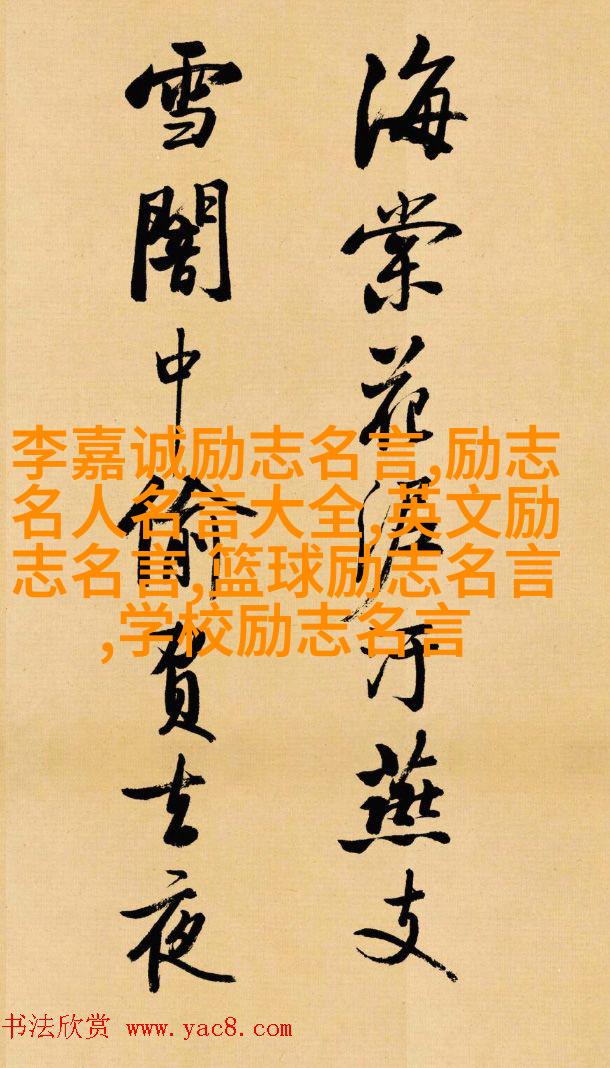 海棠花泥汙燕支
雪闇中偷負去夜
李嘉诚励志名言,励志
名人名言大全,英文励
志名言,篮球励志名言
,学校励志名言
书法欣赏 www.yac8.com